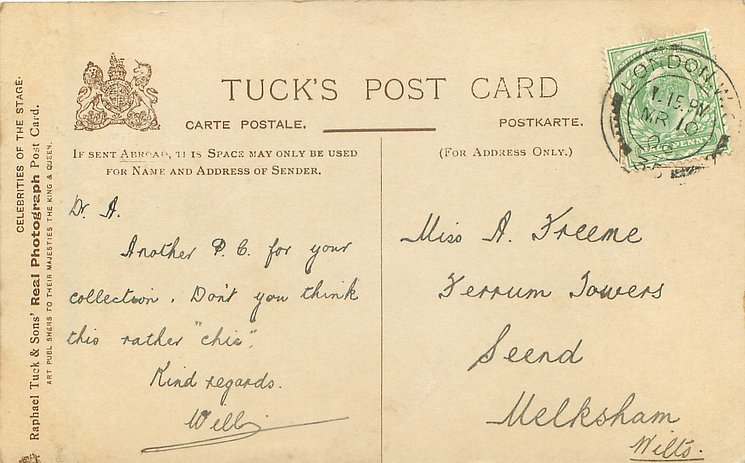 CELEBRITIES OF THE STAGE.
Raphael Tuck & Sons' Real Photograph Post Card.
ART PUBLISHERS TO THEIR MAJESTIES THE KING & QUEEN.
TUCK'S POST CARD
CARTE POSTALE.
POSTKARTE.
IF SENT ABROAD, THIS SPACE MAY ONLY BE USED
FOR NAME AND ADDRESS OF SENDER.
(FOR ADDRESS ONLY.)
LONDON
1.15 PM
MR 10
PENNY
Dr. A.
Another P. C. for your
collection. Don't you think
this rather "chic".
Kind regards.
Miss A. Freeme
Ferrum Towers
Seend
Melksham
Wilts.